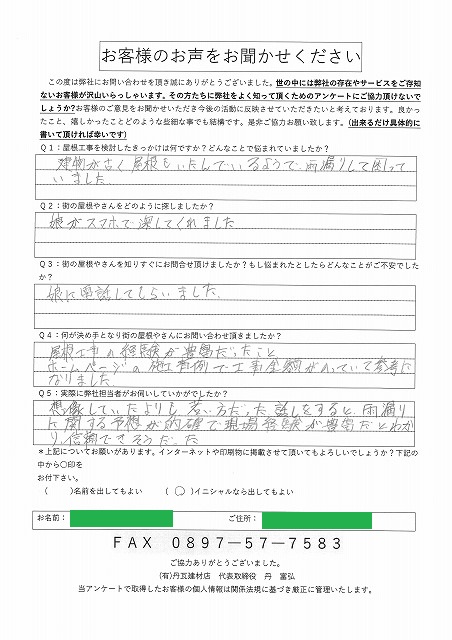 お客様のお声をお聞かせください
この度は弊社にお問い合わせを頂き誠にありがとうございました。世の中には弊社の存在やサービスをご存知
ないお客様が沢山いらっしゃいます。その方たちに弊社をよく知って頂くためのアンケートにご協力頂けないで
しょうか?お客様のご意見をお聞かせいただき今後の活動に反映させていただきたいと考えております。良かっ
たこと、嬉しかったことどのような些細な事でも結構です。是非ご協力お願い致します。(出来るだけ具体的に
書いて頂ければ幸いです)
Q1:屋根工事を検討したきっかけは何ですか?どんなことで悩まれていましたか?
建物が古く屋根もいたんでいるようで、雨漏りして困って
いました。
Q2:街の屋根やさんをどのように探しましたか?
娘がスマホで探してくれました
Q3:街の屋根やさんを知りすぐにお問合せ頂けましたか?もし悩まれたとしたらどんなことがご不安でした
か?
娘に電話してもらいました。
Q4:何が決め手となり街の屋根やさんにお問い合わせ頂きましたか?
屋根工事の経験が豊富だったこと
ホームページの施工事例で工事金額が入っていて参考に
なりました。
Q5:実際に弊社担当者がお伺いしていかがでしたか?
想像していたよりも若い方だった 話しをすると、雨漏り
に関する予想が的確で現場経験が豊富だとわか
り、信頼できそうだった
*上記についてお願いがあります。インターネットや印刷物に掲載させて頂いてもよろしいでしょうか?下記の
中から〇印を
お付下さい。
( )名前を出してもよい (〇)イニシャルなら出してもよい
お名前: ご住所:
FAX 0897-57-7583
ご協力ありがとうございました。
(有)丹瓦建材店 代表取締役 丹 富弘
当アンケートで取得したお客様の個人情報は関係法規に基づき厳正に管理いたします。